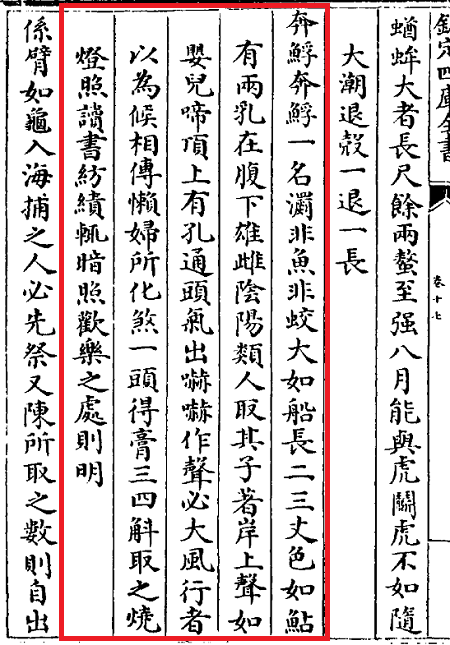 欽定四庫全書
卷十七
蝤蛑大者長尺餘兩螯至强八月能與虎鬭虎不如隨
大潮退殼一退一長
奔䱐奔䱐一名瀱非魚非蛟大如船長二三丈色如鮎
有兩乳在腹下雄雌陰陽類人取其子著岸上聲如
嬰兒啼頂上有孔通頭氣出嚇嚇作聲必大風行者
以為候相傳懶婦所化煞一頭得膏三四斛取之燒
燈照讀書紡績輒暗照歡樂之處則明
係臂如龜入海捕之人必先祭又陳所取之數則自出